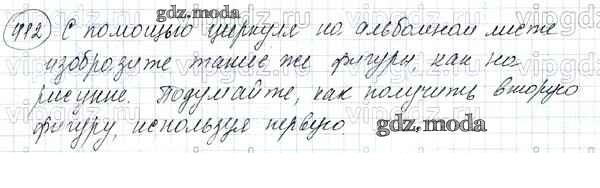 gdz.moda
982 С помощью циркуля на альбомном листе
изобразите такие же фигуры, как на
рисунке. Подумайте, как получить вторую
фигуру, используя первую
gdz.moda